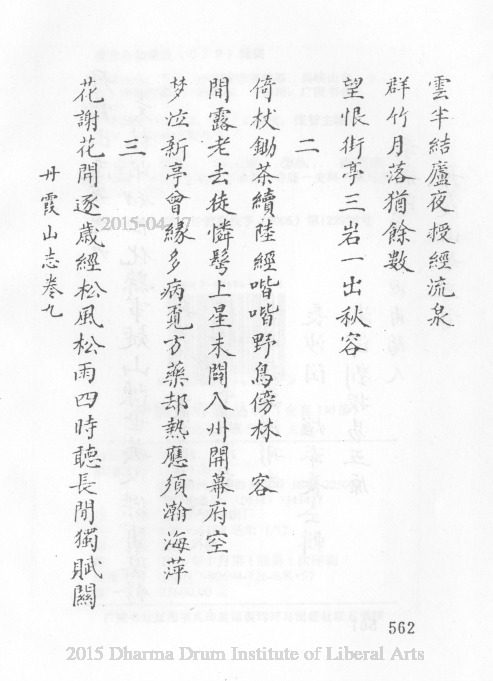 雲半結廬夜授經流泉
群竹月落猶餘數
望恨街亭三岩一出秋容
二
倚杖鋤茶續陸經喈喈野鳥傍林 客
間露老去徒憐鬂上星未聞入州開幕府空
梦泣新亭曾緣多病覓方藥却熱應須瀚海萍
三
花謝花開逐歲經松風松雨四時聽長閒獨賦關
丹霞山志卷九
562
2015 Dharma Drum Institute of Liberal Arts